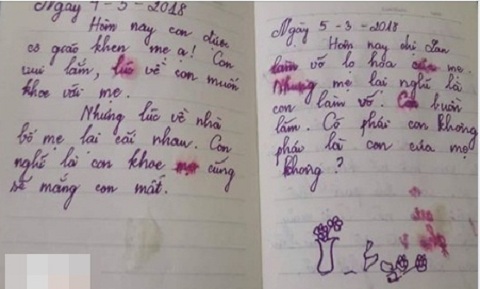 Ngày 4-3-2018
Hôm nay con được
cô giáo khen mẹ ạ! Con
vui lắm, lúc về con muốn
khoe với mẹ.
Nhưng lúc về nhà
bố mẹ lại cãi nhau. Con
nghĩ lại con khoe mẹ cũng
sẽ mắng con mất.
Ngày 5-3-2018
Hôm nay chị Lan
làm vỡ lọ hoa của mẹ.
Nhưng mẹ lại nghĩ là
con làm vỡ. Con buồn
lắm. Có phải con không
phải là con của mẹ
không?